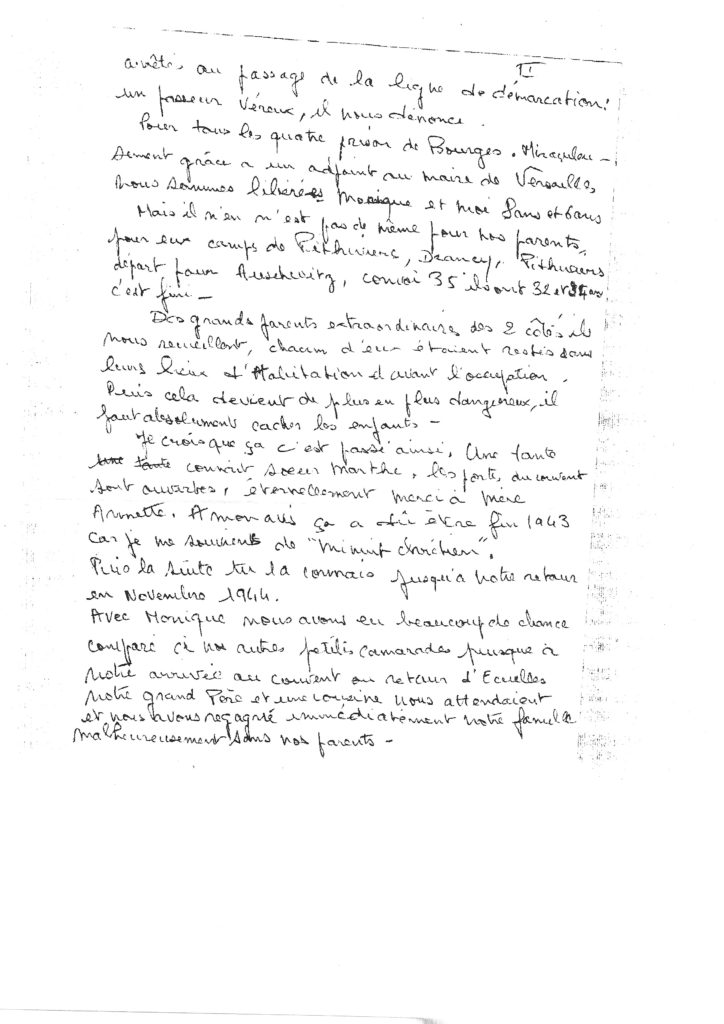 II
arrêtés au passage de la ligne de démarcation:
un passeur véreux, il nous dénonce.
Pour tous les quatre prison de Bourges. Miraculeu-
sement grâce a un adjoint au maire de Versailles,
nous sommes libérées Monique et moi 8ans et 6ans
Mais il n'en n'est pas de même pour nos parents,
pour eux camps de Pithiviers, Drancy, Pithiviers
départ pour Auschwitz, convoi 35 ils ont 32 et 34 ans
c'est fini -
Des grands parents extraordinaires des 2 côtés ils
nous recueillent, chacun d'eux étaient restés dans
leurs lieux d'Habitation d'avant l'occupation.
Puis cela devient de plus en plus dangereux, il
faut absolument cacher les enfants -
Je crois que ça c'est passé ainsi, Une tante
une tante connait soeur Marthe, les portes du couvent
sont ouvertes, éternellement merci à mère
Annette. A mon avis ça a dû être fin 1943
car je me souviens de "Minuit chrétien".
Puis la suite tu la connais jusqu'à notre retour
en Novembre 1944.
Avec Monique nous avons eu beaucoup de chance
comparé à nos autres petits camarades puisque à
notre arrivée au couvent au retour d'Ecuelles
notre grand Père et une cousine nous attendaient
et nous avons regagné immédiatement notre famille
malheureusement sans nos parents -